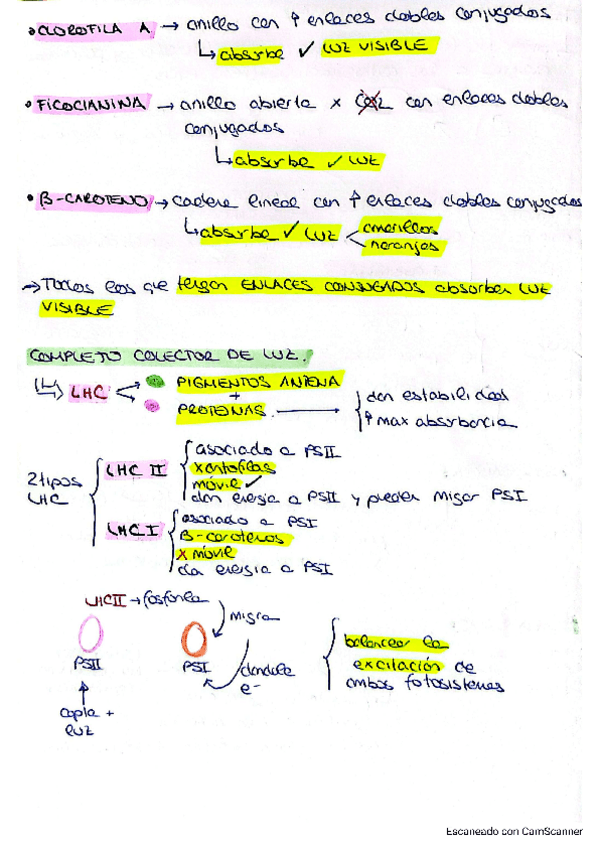 • CLOROFILA A → anillo con ↑ enlaces dobles conjugados
↳ absorbe ✓ LUZ VISIBLE
• FICOCIANINA → anillo abierto x con enlaces dobles
conjugados
↳ absorbe ✓ LUZ
• β-CAROTENO → cadena lineal con ↑ enlaces dobles conjugados
↳ absorbe ✓ LUZ < amarillos
naranjas
→ Todos los que tengan ENLACES CONJUGADOS absorben LUZ
VISIBLE
COMPLEJO COLECTOR DE LUZ.
↳ LHC < PIGMENTOS ANTENA
+
PROTEINAS → dan estabilidad
↑ max absorbancia
2 tipos
LHC
LHC II
asociado a PSII
xantofilas
móvil ✓
dan energia a PSII y pueden migar PSI
LHC I
asociado a PSI
β-carotenos
x móvil
da energia a PSI
LHCII → fosforila
migra
PSII
PSI
dandole
e-
capta +
luz
balancear la
excitación de
ambos fotosistemas
Escaneado con CamScanner